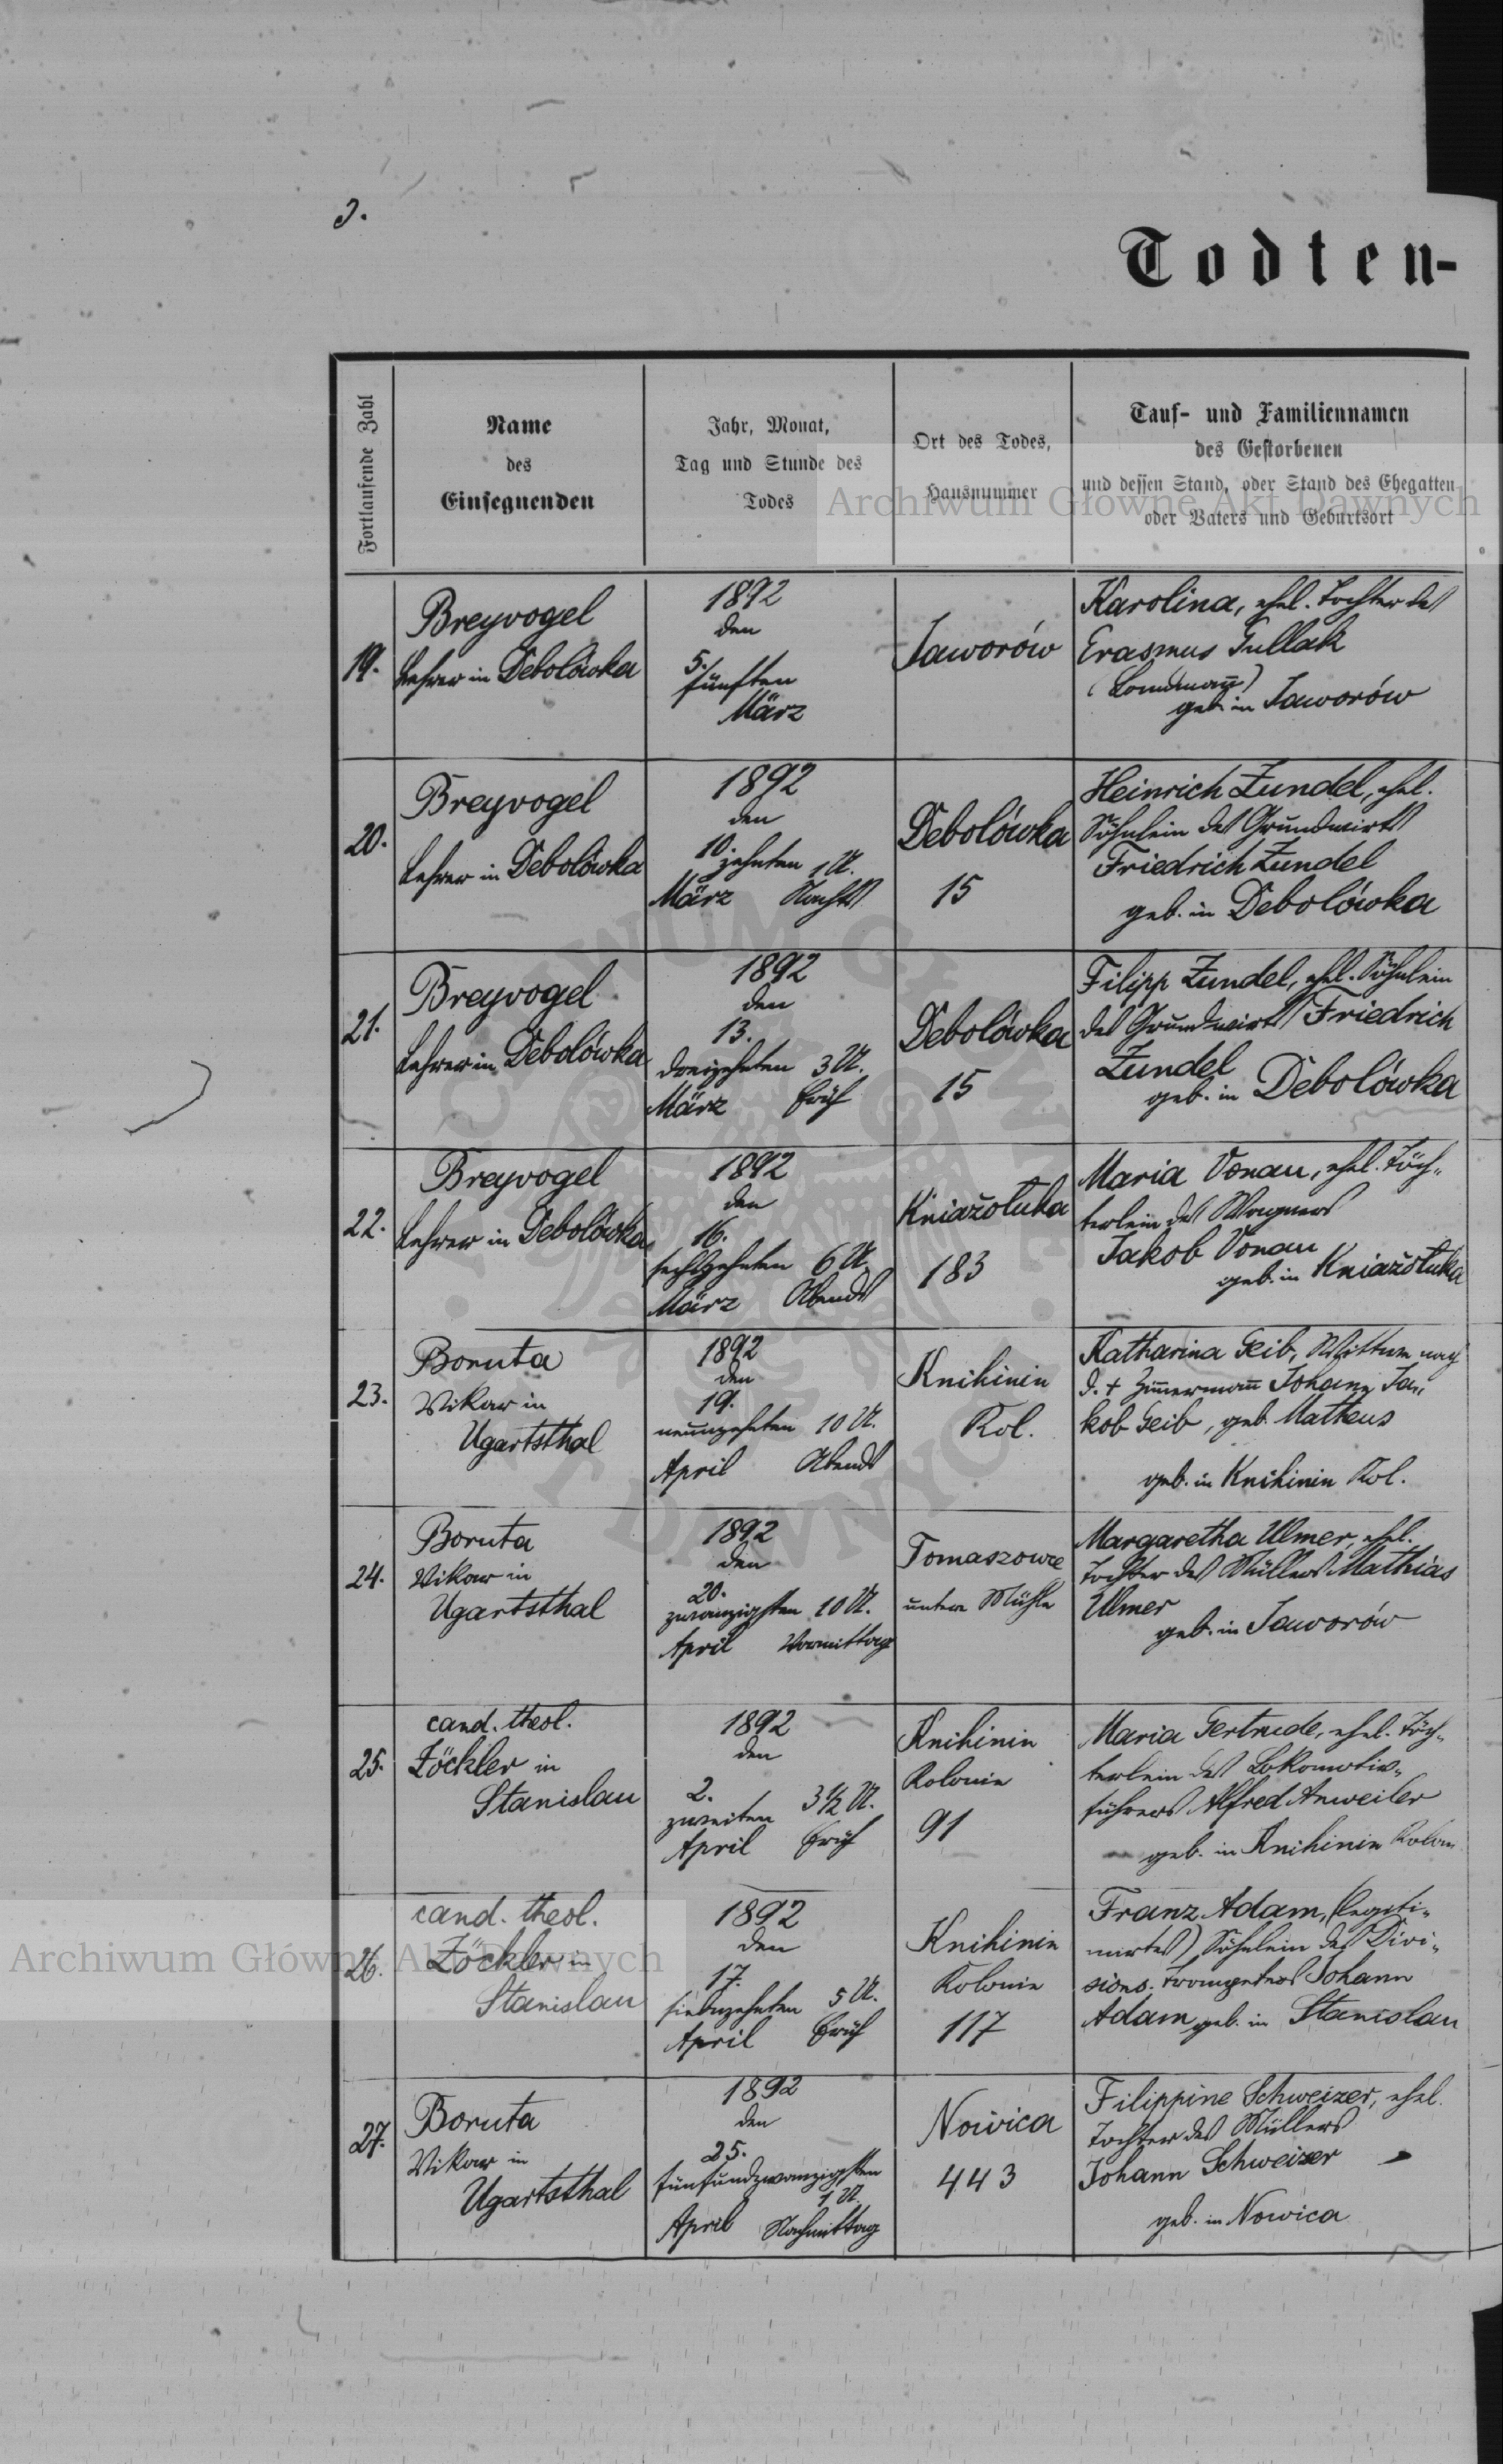 3.
Todten-
Fortlaufende Zahl
Name
des
Einsegnenden
Jahr, Monat,
Tag und Stunde des
Todes
Ort des Todes,
Hausnummer
Tauf- und Familiennamen
des Gestorbenen
und dessen Stand, oder Stand des Ehegatten
oder Vaters und Geburtsort
Archiwum Główne Akt Dawnych
19.
Breyvogel
Lehrer in Debolówka
1892
den
5.
fünften
März
Jaworów
Karolina, ehel. Tochter des
Erasmus Gullak
geb. in Jaworów
20.
Breyvogel
Lehrer in Debolówka
1892
den
10.
zehnten 1 U.
März Nachts
Debolówka
15
Heinrich Zundel, ehel.
Söhnlein des Grundwirts
Friedrich Zundel
geb. in Debolówka
21.
Breyvogel
Lehrer in Debolówka
1892
den
13.
dreizehnten 3 U.
März früh
Debolówka
15
Filipp Zundel, ehel. Söhnlein
des Grundwirts Friedrich
Zundel
geb. in Debolówka
22.
Breyvogel
Lehrer in Debolówka
1892
den
16.
sechszehnten 6 U.
März Abends
Kniažołuka
183
Maria Vonau, ehel. Töch-
terlein des Wagners
Jakob Vonau
geb. in Kniažołuka
23.
Boruta
Vikar in
Ugartsthal
1892
den
19.
neunzehnten 10 U.
April Abends
Knihinin
Kol.
Katharina Geib, Wittwe nach
d. + Zimmermann Johann Ja-
kob Geib, geb. Matheus
geb. in Knihinin Kol.
24.
Boruta
Vikar in
Ugartsthal
1892
den
20.
zwanzigsten 10 U.
April Vormittag
Tomaszowce
untere Mühle
Margaretha Ulmer, ehel.
Tochter des Müllers Mathias
Ulmer
geb. in Jaworów
25.
cand. theol.
Zöckler in
Stanislau
1892
den
2.
zweiten 3½ U.
April früh
Knihinin
Kolonie
91
Maria Gertrude, ehel. Töch-
terlein des Lokomotiv-
führers Alfred Anweiler
geb. in Knihinin Kolon
26.
cand. theol.
Zöckler in
Stanislau
1892
den
17.
siebenzehnten 5 U.
April früh
Knihinin
Kolonie
117
Franz Adam, (legiti-
mirtes) Söhnlein des Divi-
sions-Trompeters Johann
Adam geb. in Stanislau
Archiwum Główne Akt Dawnych
27.
Boruta
Vikar in
Ugartsthal
1892
den
25.
fünfundzwanzigsten
1 U.
April Nachmittag
Nowica
443
Filippine Schweizer, ehel.
Tochter des Müllers
Johann Schweizer
geb. in Nowica